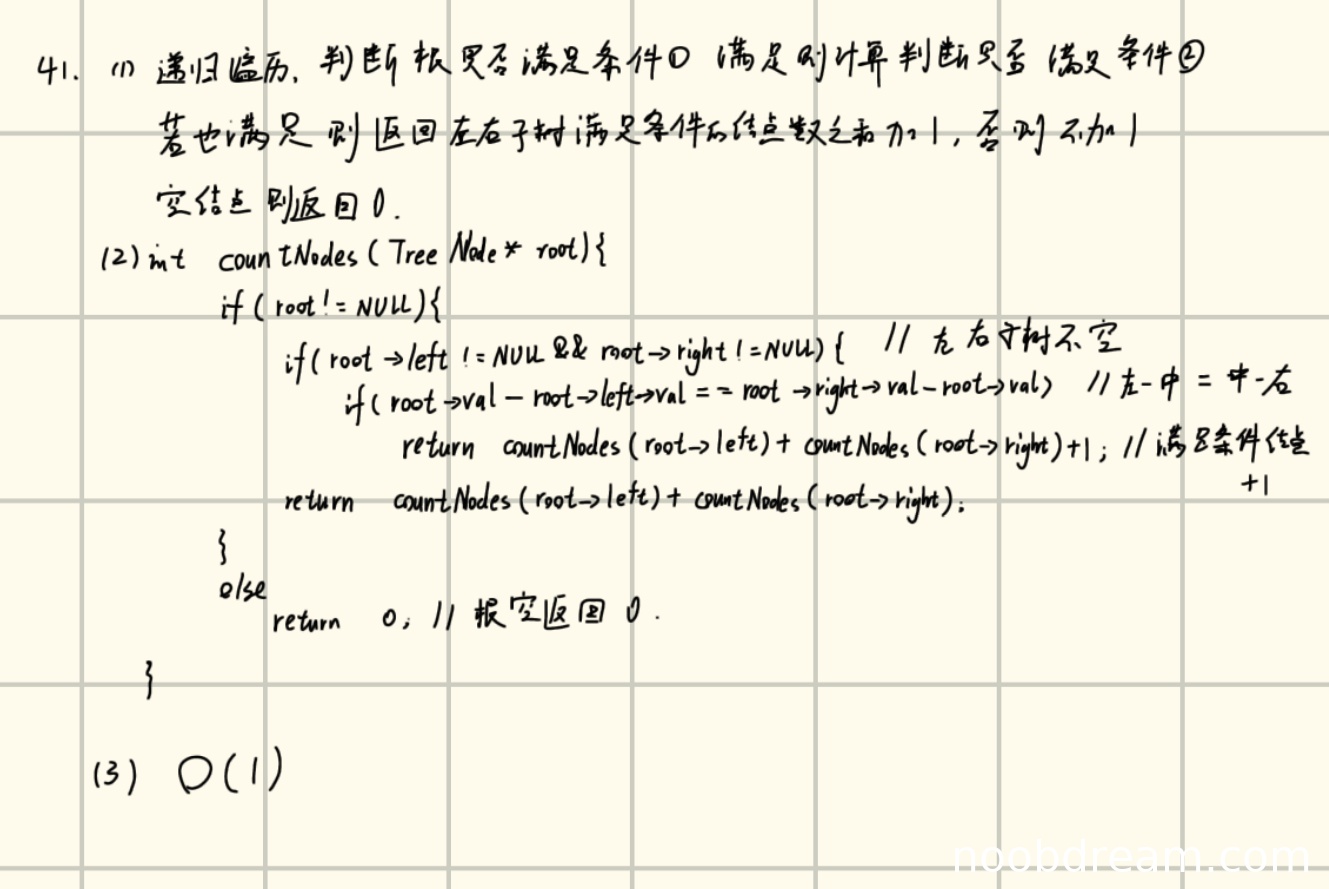 41. (1) 递归遍历, 判断根是否满足条件① 满足则计算判断是否满足条件②
若也满足 则返回左右子树满足条件的结点数之和加1, 否则不加1
空结点则返回0.
(2) int countNodes(TreeNode* root){
if(root!=NULL){
if(root->left!=NULL && root->right!=NULL){ // 左右子树不空
if(root->val-root->left->val==root->right->val-root->val) //左-中=中-右
return countNodes(root->left)+countNodes(root->right)+1; //满足条件结点
+1
return countNodes(root->left)+countNodes(root->right);
}
else
return 0; // 根空返回0.
}
(3) O(1)
noobdream.com